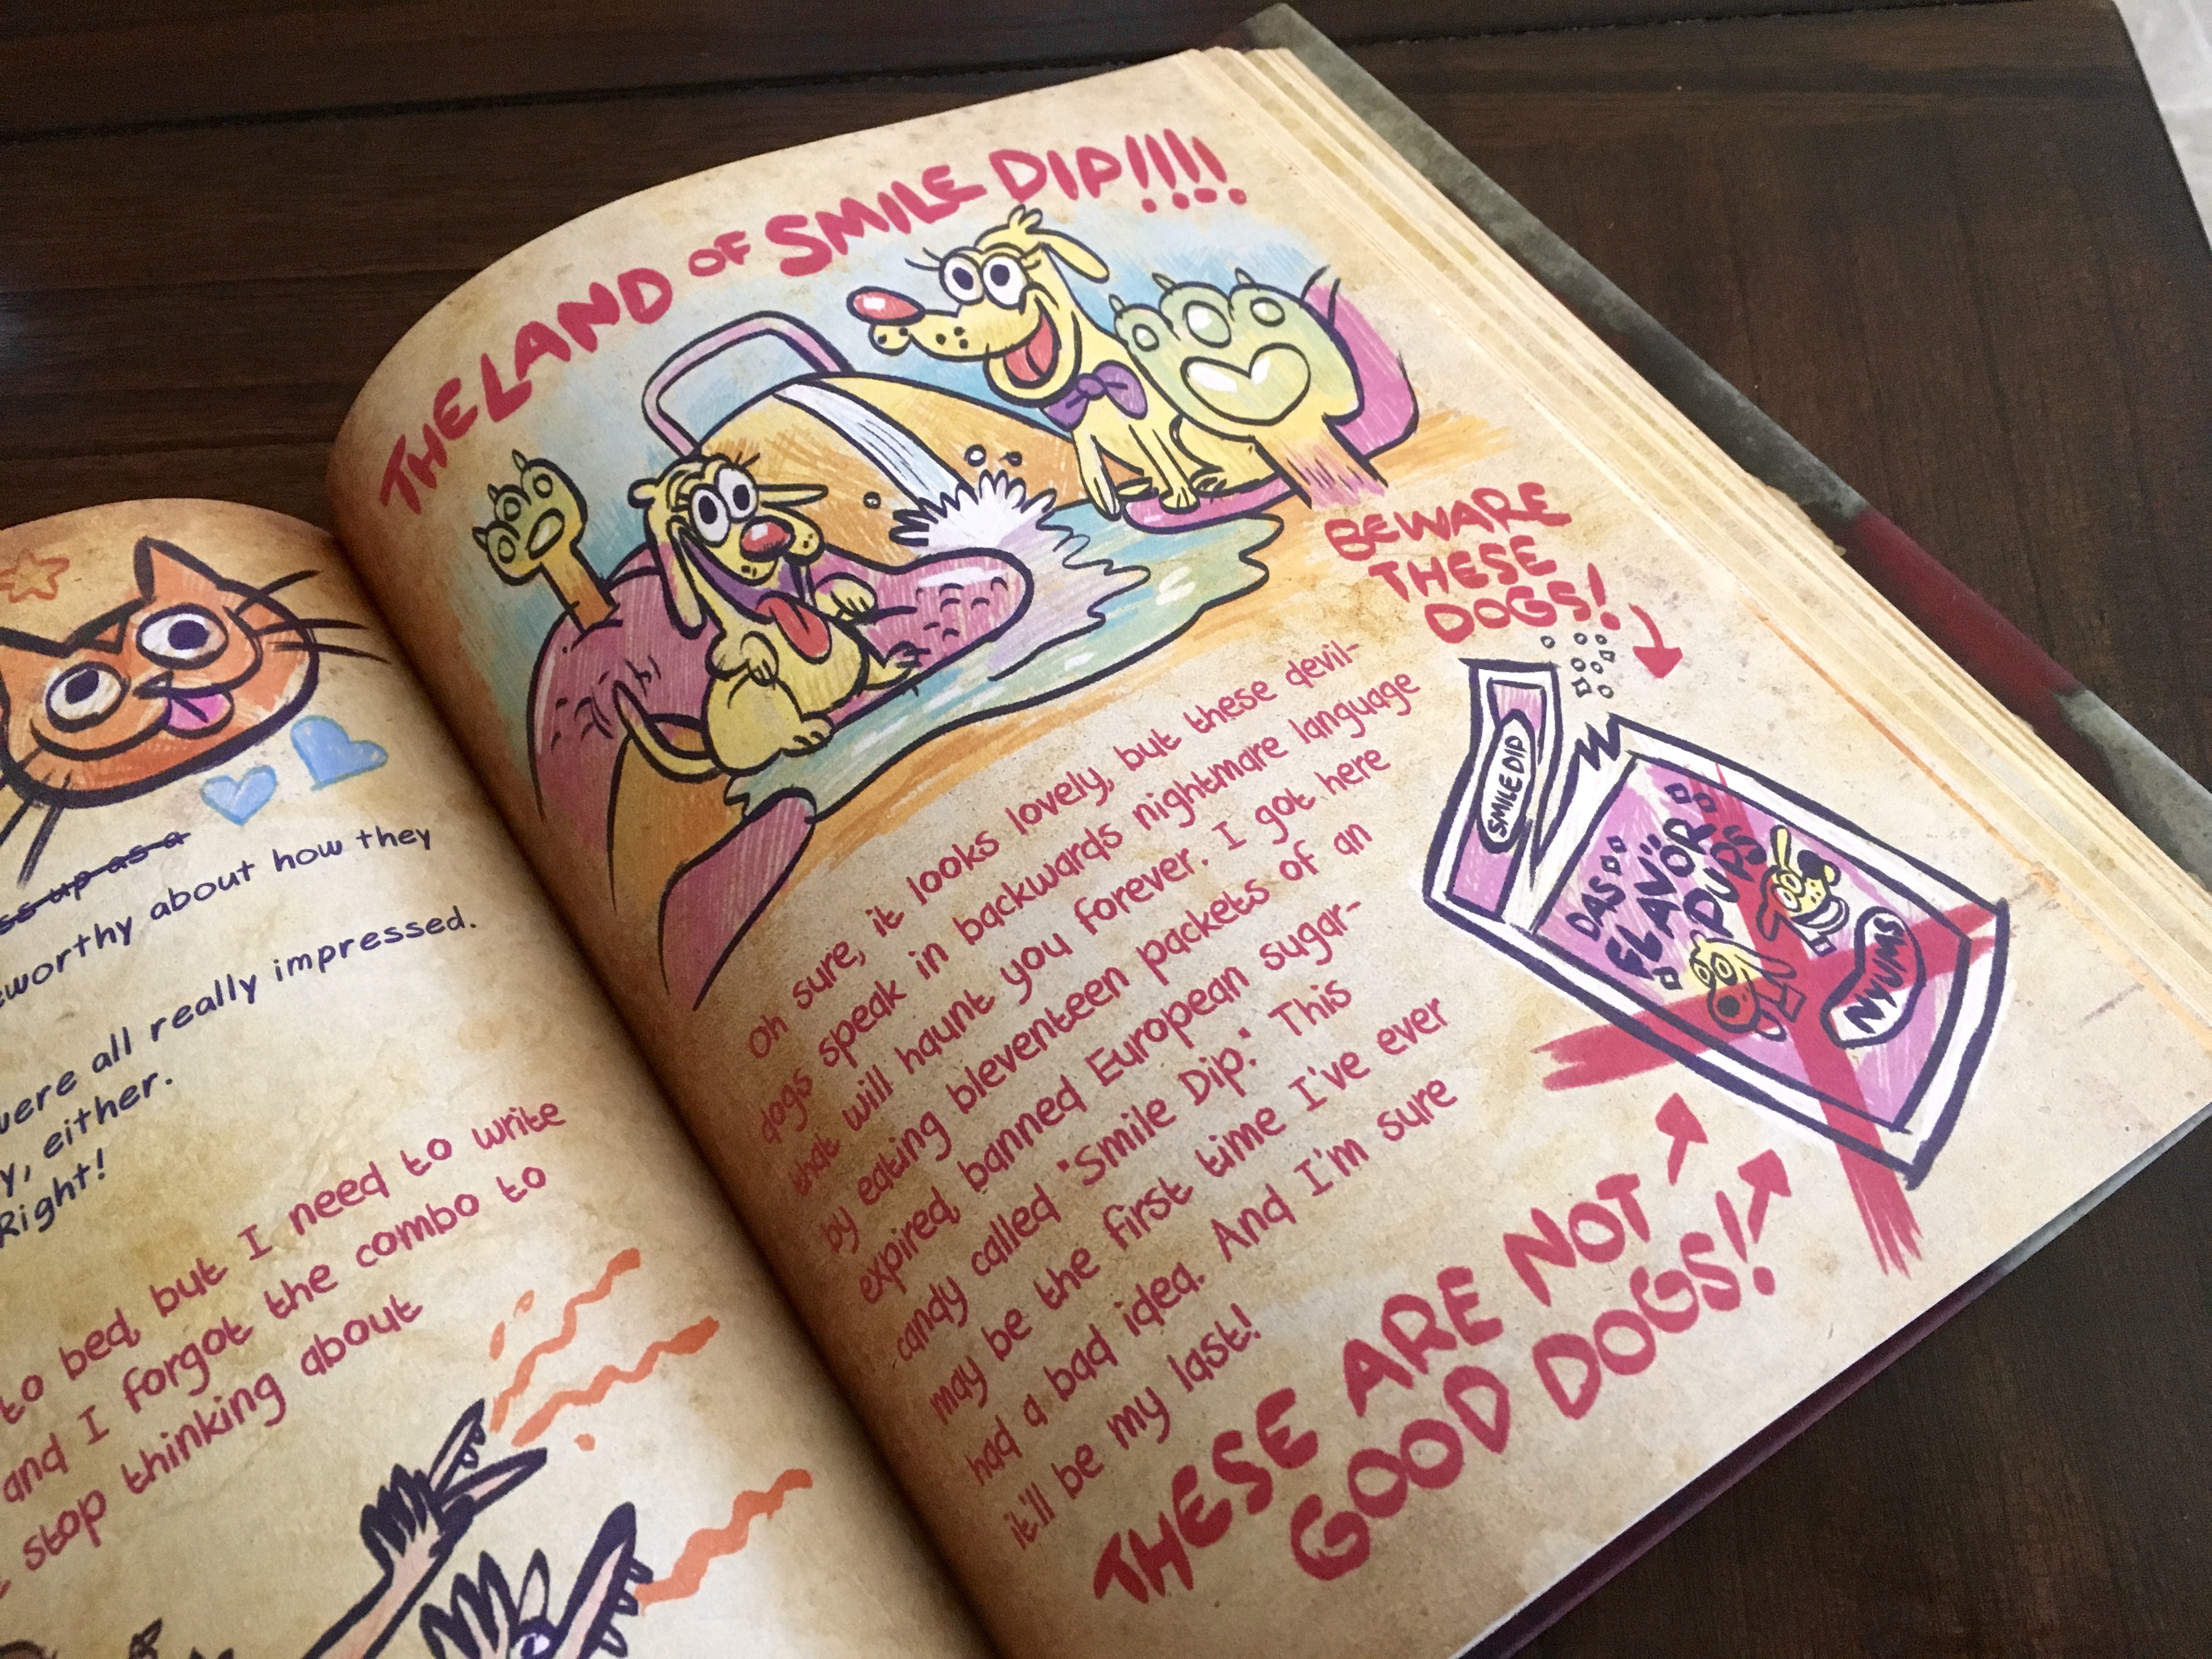 up as a
worthy about how they
were all really impressed.
either.
Right!
to bed, but I need to write
and I forgot the combo to
stop thinking about
THE LAND OF SMILE DIP!!!!
BEWARE
THESE
DOGS!
Oh sure, it looks lovely, but these devil-
dogs speak in backwards nightmare language
that will haunt you forever. I got here
by eating bleventeen packets of an
expired, banned European sugar-
candy called "Smile Dip." This
may be the first time I've ever
had a bad idea. And I'm sure
it'll be my last!
SMILE DIP
DAS
FLAVOR
PUPS
NYUMS
THESE ARE NOT
GOOD DOGS!